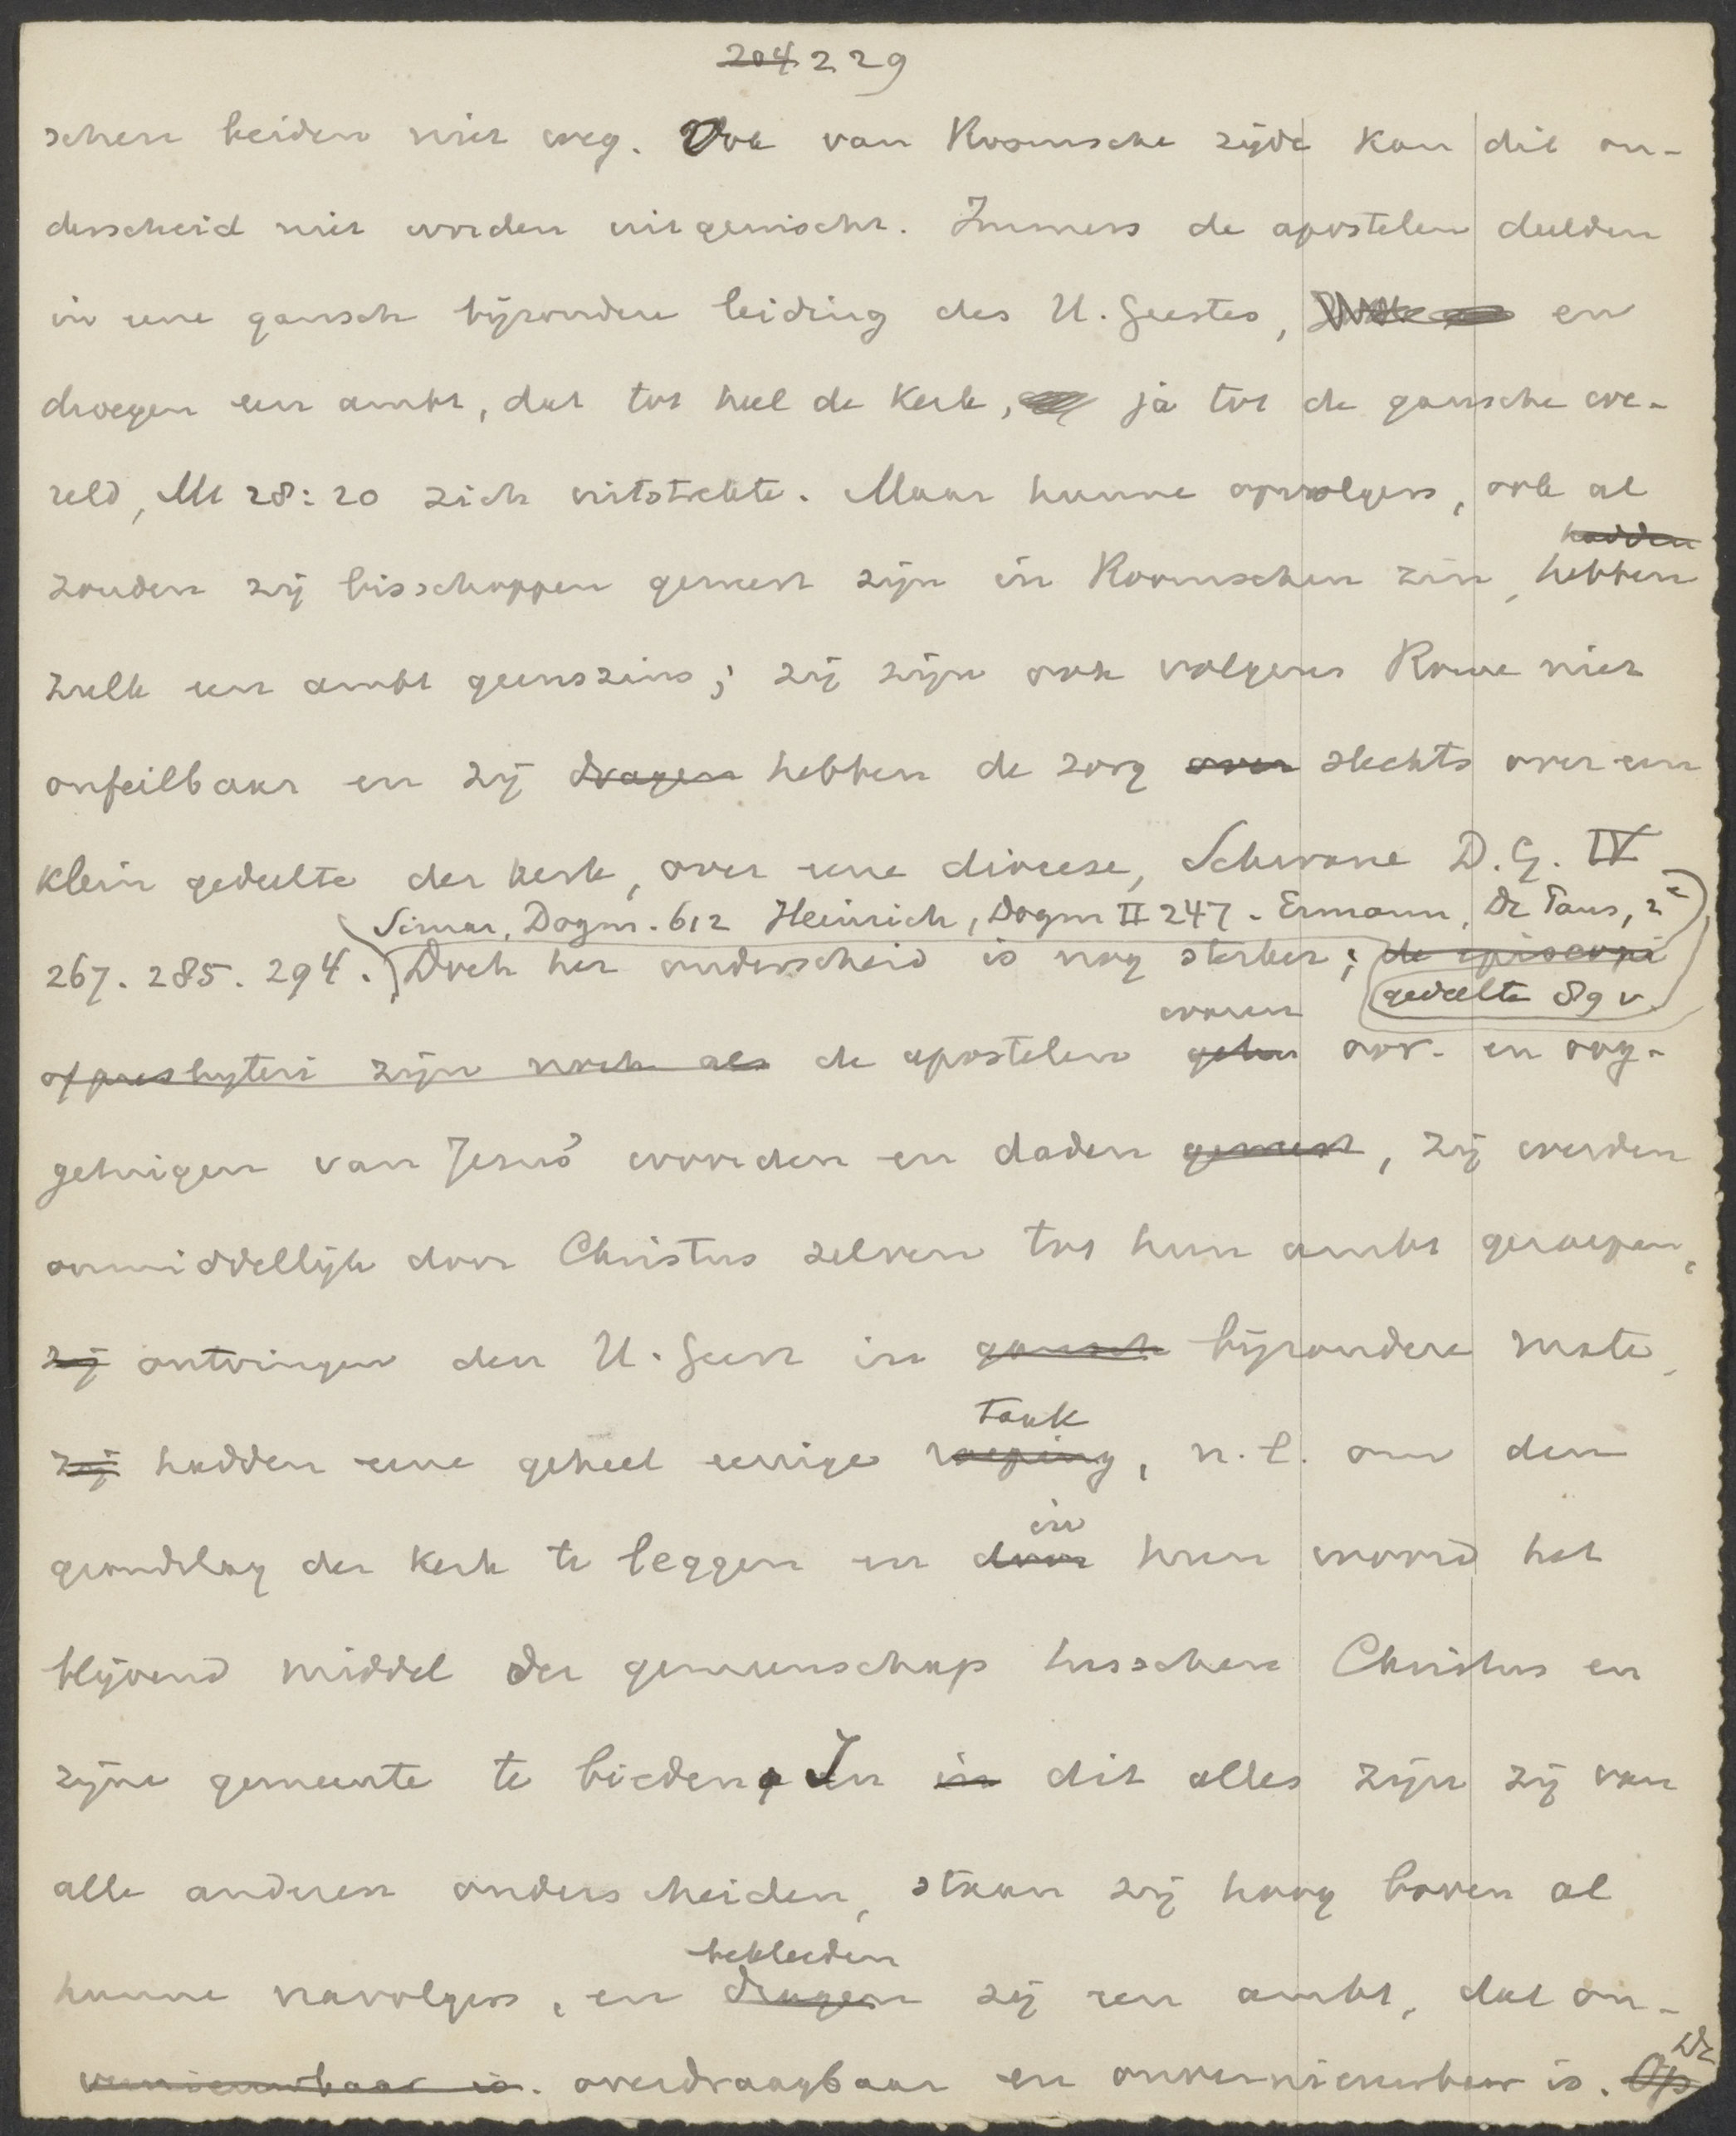 204 229
schen beiden niet weg. Ook van Roomsche zijde kan dit on-
derscheid niet worden uitgewischt. Immers de apostelen deelden
in eene gansch bijzondere leiding des H. Geestes, en
droegen een ambt, dat tot heel de kerk, ja tot de gansche we-
reld, Mt 28:20 zich uitstrekte. Maar hunne opvolgers, ook al
hadden
zouden zij bisschoppen geweest zijn in Roomschen zin, hebben
zulk een ambt geenszins; zij zijn ook volgens Rome niet
onfeilbaar en zij dragen hebben de zorg over slechts over een
klein gedeelte der kerk, over eene diocese, Schwane D. G. IV
Simar, Dogm. 612 Heinrich, Dogm II 247. Ermann, De Paus, 2e
267. 285. 294. Doch het onderscheid is nog sterker; de episcopi
gedeelte 89 v.
waren
of presbyteri zijn noch als de apostelen oor- en oog-
getuigen van Jezus' woorden en daden geweest, zij werden
onmiddellijk door Christus zelven tot hun ambt geroepen,
zij ontvingen den H. Geest in gansch bijzondere mate,
taak
zij hadden eene geheel eenige roeping, n.l. om den
in
grondslag der kerk te leggen en door hun woord het
blijvend middel der gemeenschap tusschen Christus en
zijne gemeente te bieden. In in dit alles zijn zij van
alle anderen onderscheiden, staan zij hoog boven al
bekleeden
hunne navolgers, en dragen zij een ambt, dat on-
De
vernieuwbaar is. overdraagbaar en onvernieuwbaar is. Op